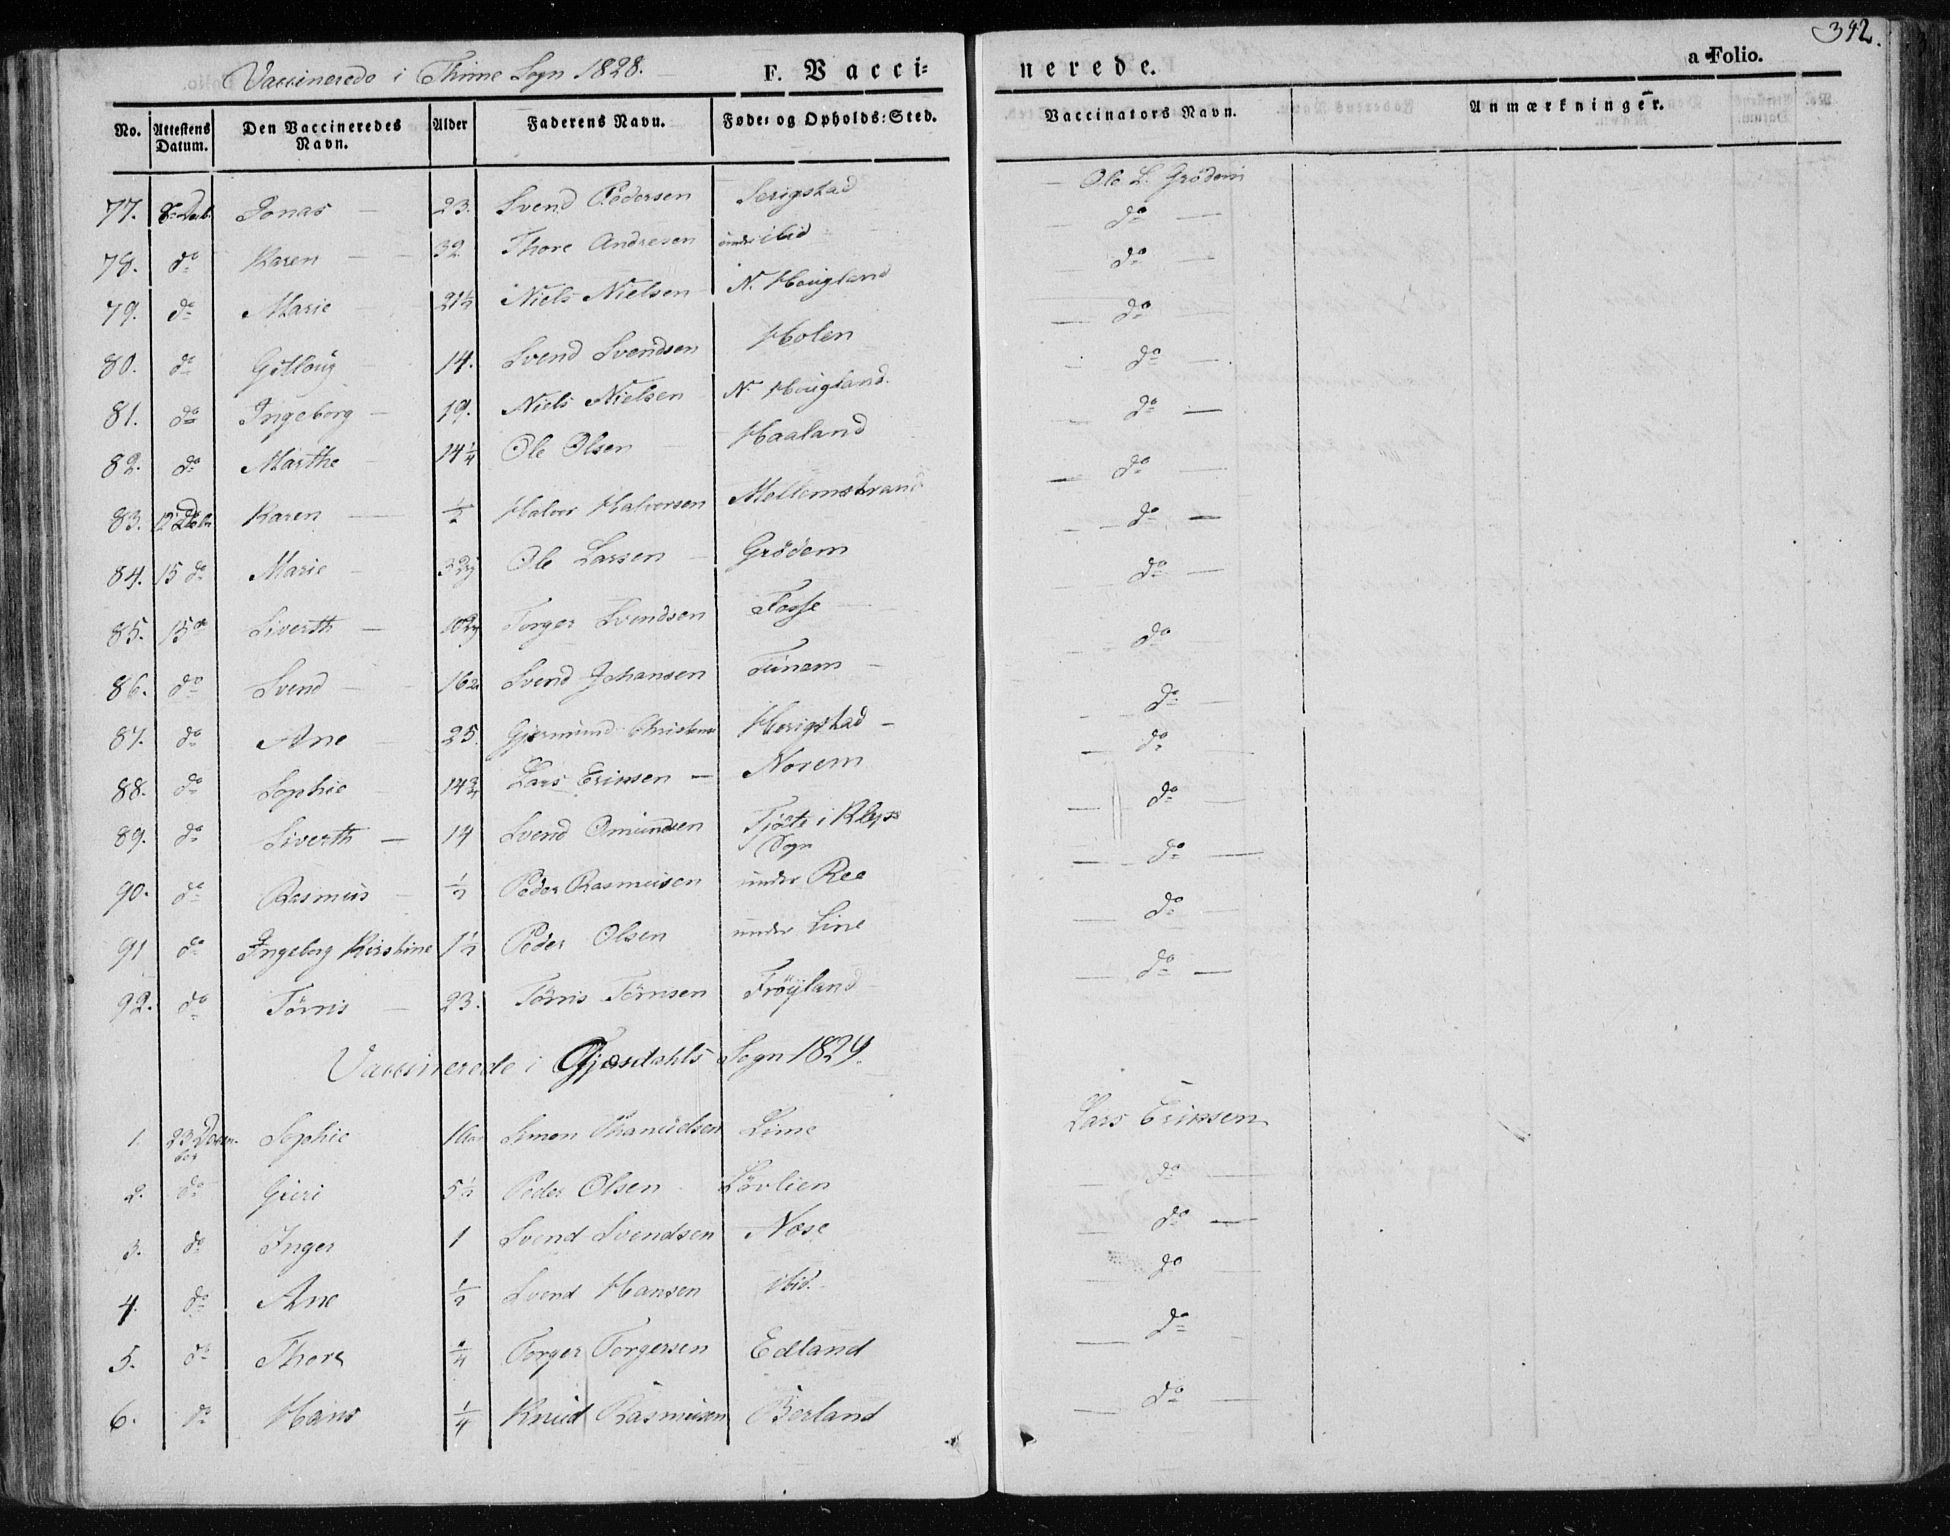 392.
Vaccinerede i Thime Sogn 1828.
F. Vacci= nerede.
a Folio.
No. | Attestens Datum. | Den Vaccineredes Navn. | Alder | Faderens Navn. | Føde= og Opholds=Sted. | Vaccinators Navn. | Anmærkninger.
77. | 8de Decb. | Jonas — | 23. | Svend Pedersen | Serigstad | — Ole L. Grödem
78. | do | Karen — | 32 | Thore Andresen | under ibid | do —
79. | do | Marie | 21½ | Niels Nielsen | N. Hougland | do —
80. | do | | 14. | Svend Svendsen | Holen | — do —
81. | do | Ingeborg — | 19. | Niels Nielsen | N. Hougland. | do —
82. | do | Marthe | 14¼ | Ole Olsen | Haaland | do —
83. | 12 Decbr. | Karen — | ½ | Halvor Halvorsen | Mellemstrand | do —
84. | 15 do | Marie — | | Ole Larsen — | Grödem | do —
85. | 15 do | Siverth — | | Torger Svendsen | Fosse — | do —
86. | do | Svend — | | Svend Johansen | Tunem — | do
87. | do | Ane — | 25. | Gjermund | Herigstad — | do —
88. | do | Sophie | 14¾ | Lars Erinsen — | Norem | — do
89. | do | Siverth — | 14 | Svend Omundsen | Tjöte i Klep Sogn | — do —
90. | do | Rasmus — | ½ | Peder Rasmusen | under Ree | — do —
91 | do | Ingeborg Kirstine | 1½ | Peder Olsen | under Line | do —
92. | do | Törris — | 23. | Törris Törrisen | Fröyland | — do —
Vaccinerede i Gjesdahls Sogn 1829.
1. | 23 Decem-ber | Sophie | | Simon Thanielsen | Lime | Lars Erinsen
2. | do | Guri | 5½ | Peder Olsen | Lövlien | — do —
3. | do | Inger | 1 | Svend Svendsen | Nese | do —
4. | do | Ane | ½ | Svend Hansen | ibid. | do
5. | do | Thore | ¼ | Torger Torgersen | Edland | — do —
6. | do | Hans | ¼ | Knud Rasmusen | Berland | — do —